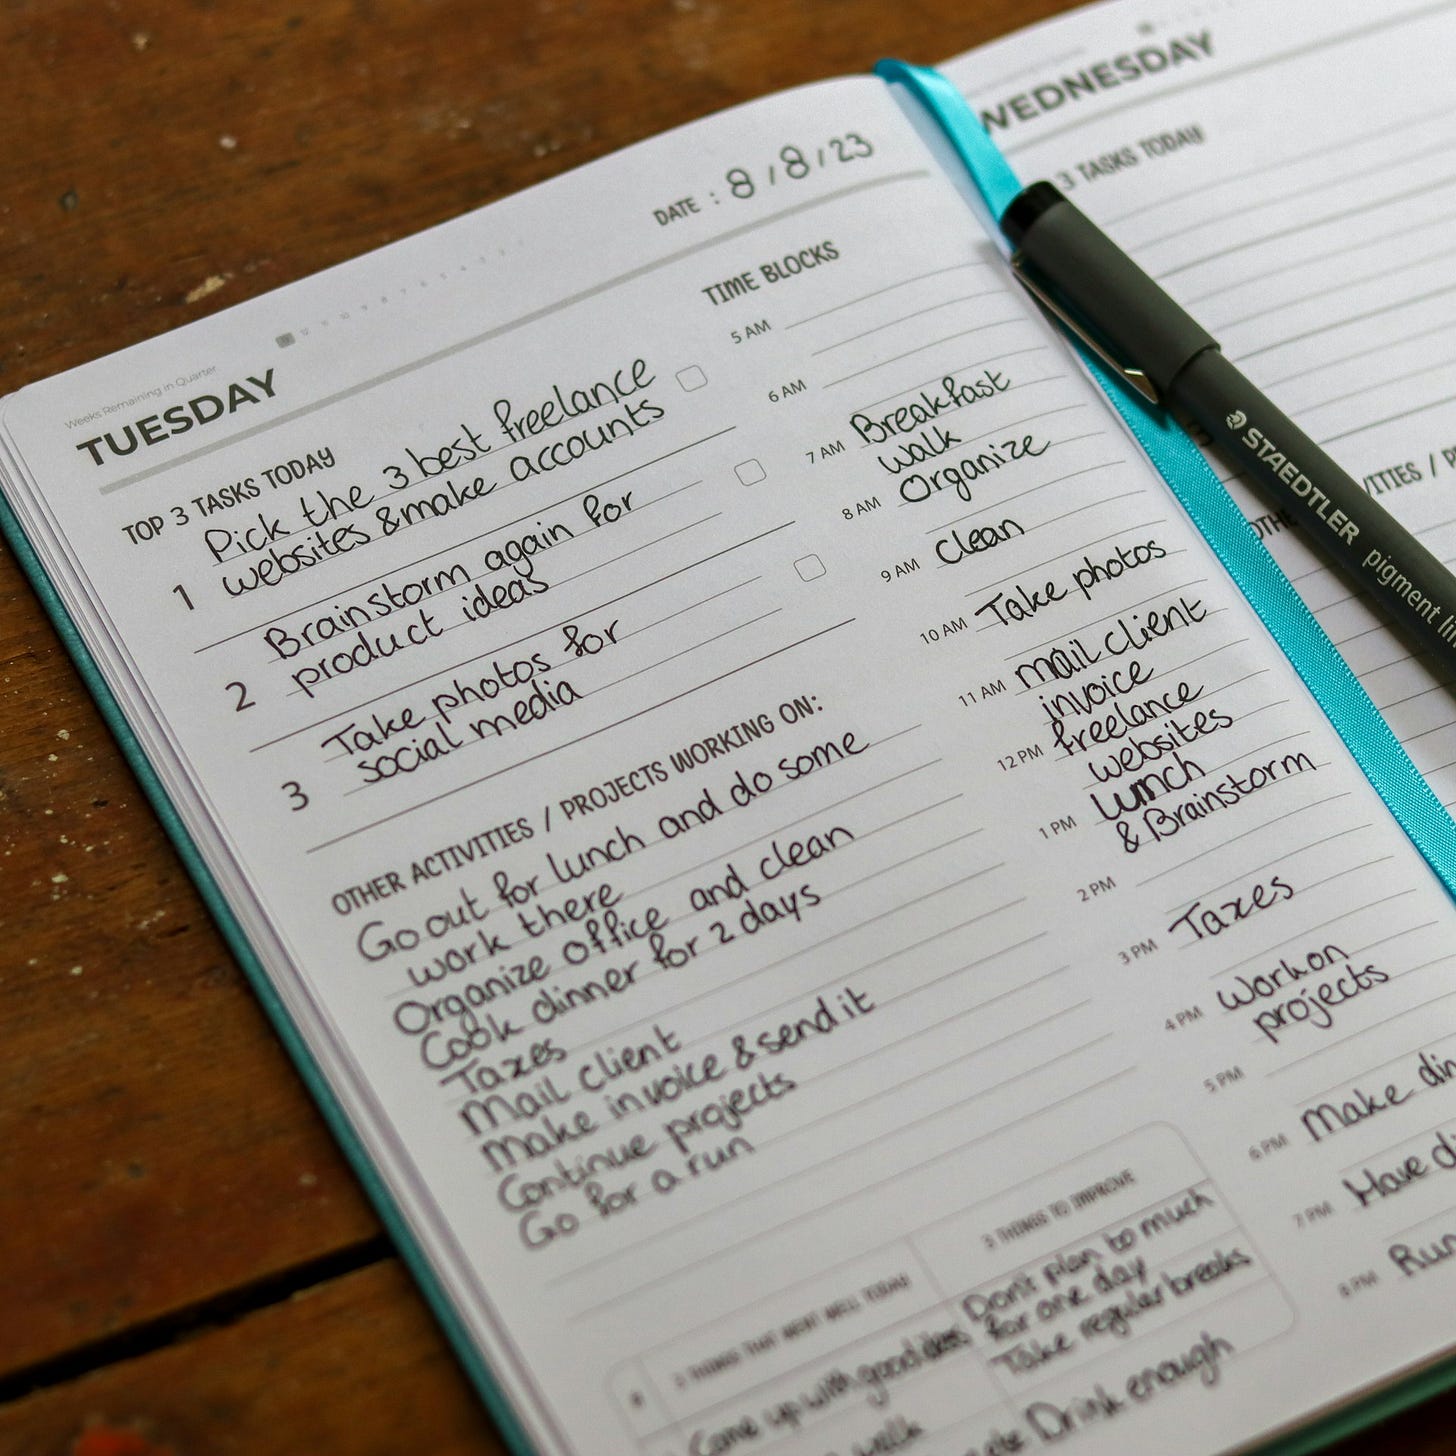 Weeks Remaining in Quarter
TUESDAY
DATE : 8/8/23
TOP 3 TASKS TODAY
1 Pick the 3 best freelance
websites & make accounts
2 Brainstorm again for
product ideas
3 Take photos for
social media
OTHER ACTIVITIES / PROJECTS WORKING ON:
Go out for lunch and do some
work there
Organize office and clean
Cook dinner for 2 days
Taxes
Mail client
Make invoice & send it
Continue projects
Go for a run
TIME BLOCKS
5 AM
6 AM
7 AM Breakfast
walk
8 AM Organize
9 AM Clean
10 AM Take photos
11 AM mail client
invoice
12 PM freelance
websites
1 PM Lunch
& Brainstorm
2 PM
3 PM Taxes
4 PM Work on
projects
5 PM
6 PM Make din
7 PM Have d
8 PM Run
3 THINGS THAT WENT WELL TODAY
Come up with good ideas
walk
3 THINGS TO IMPROVE
Don't plan to much
for one day
Take regular breaks
Drink enough
WEDNESDAY
3 TASKS TODAY
OTHE
VITIES / P
STAEDTLER pigment lin